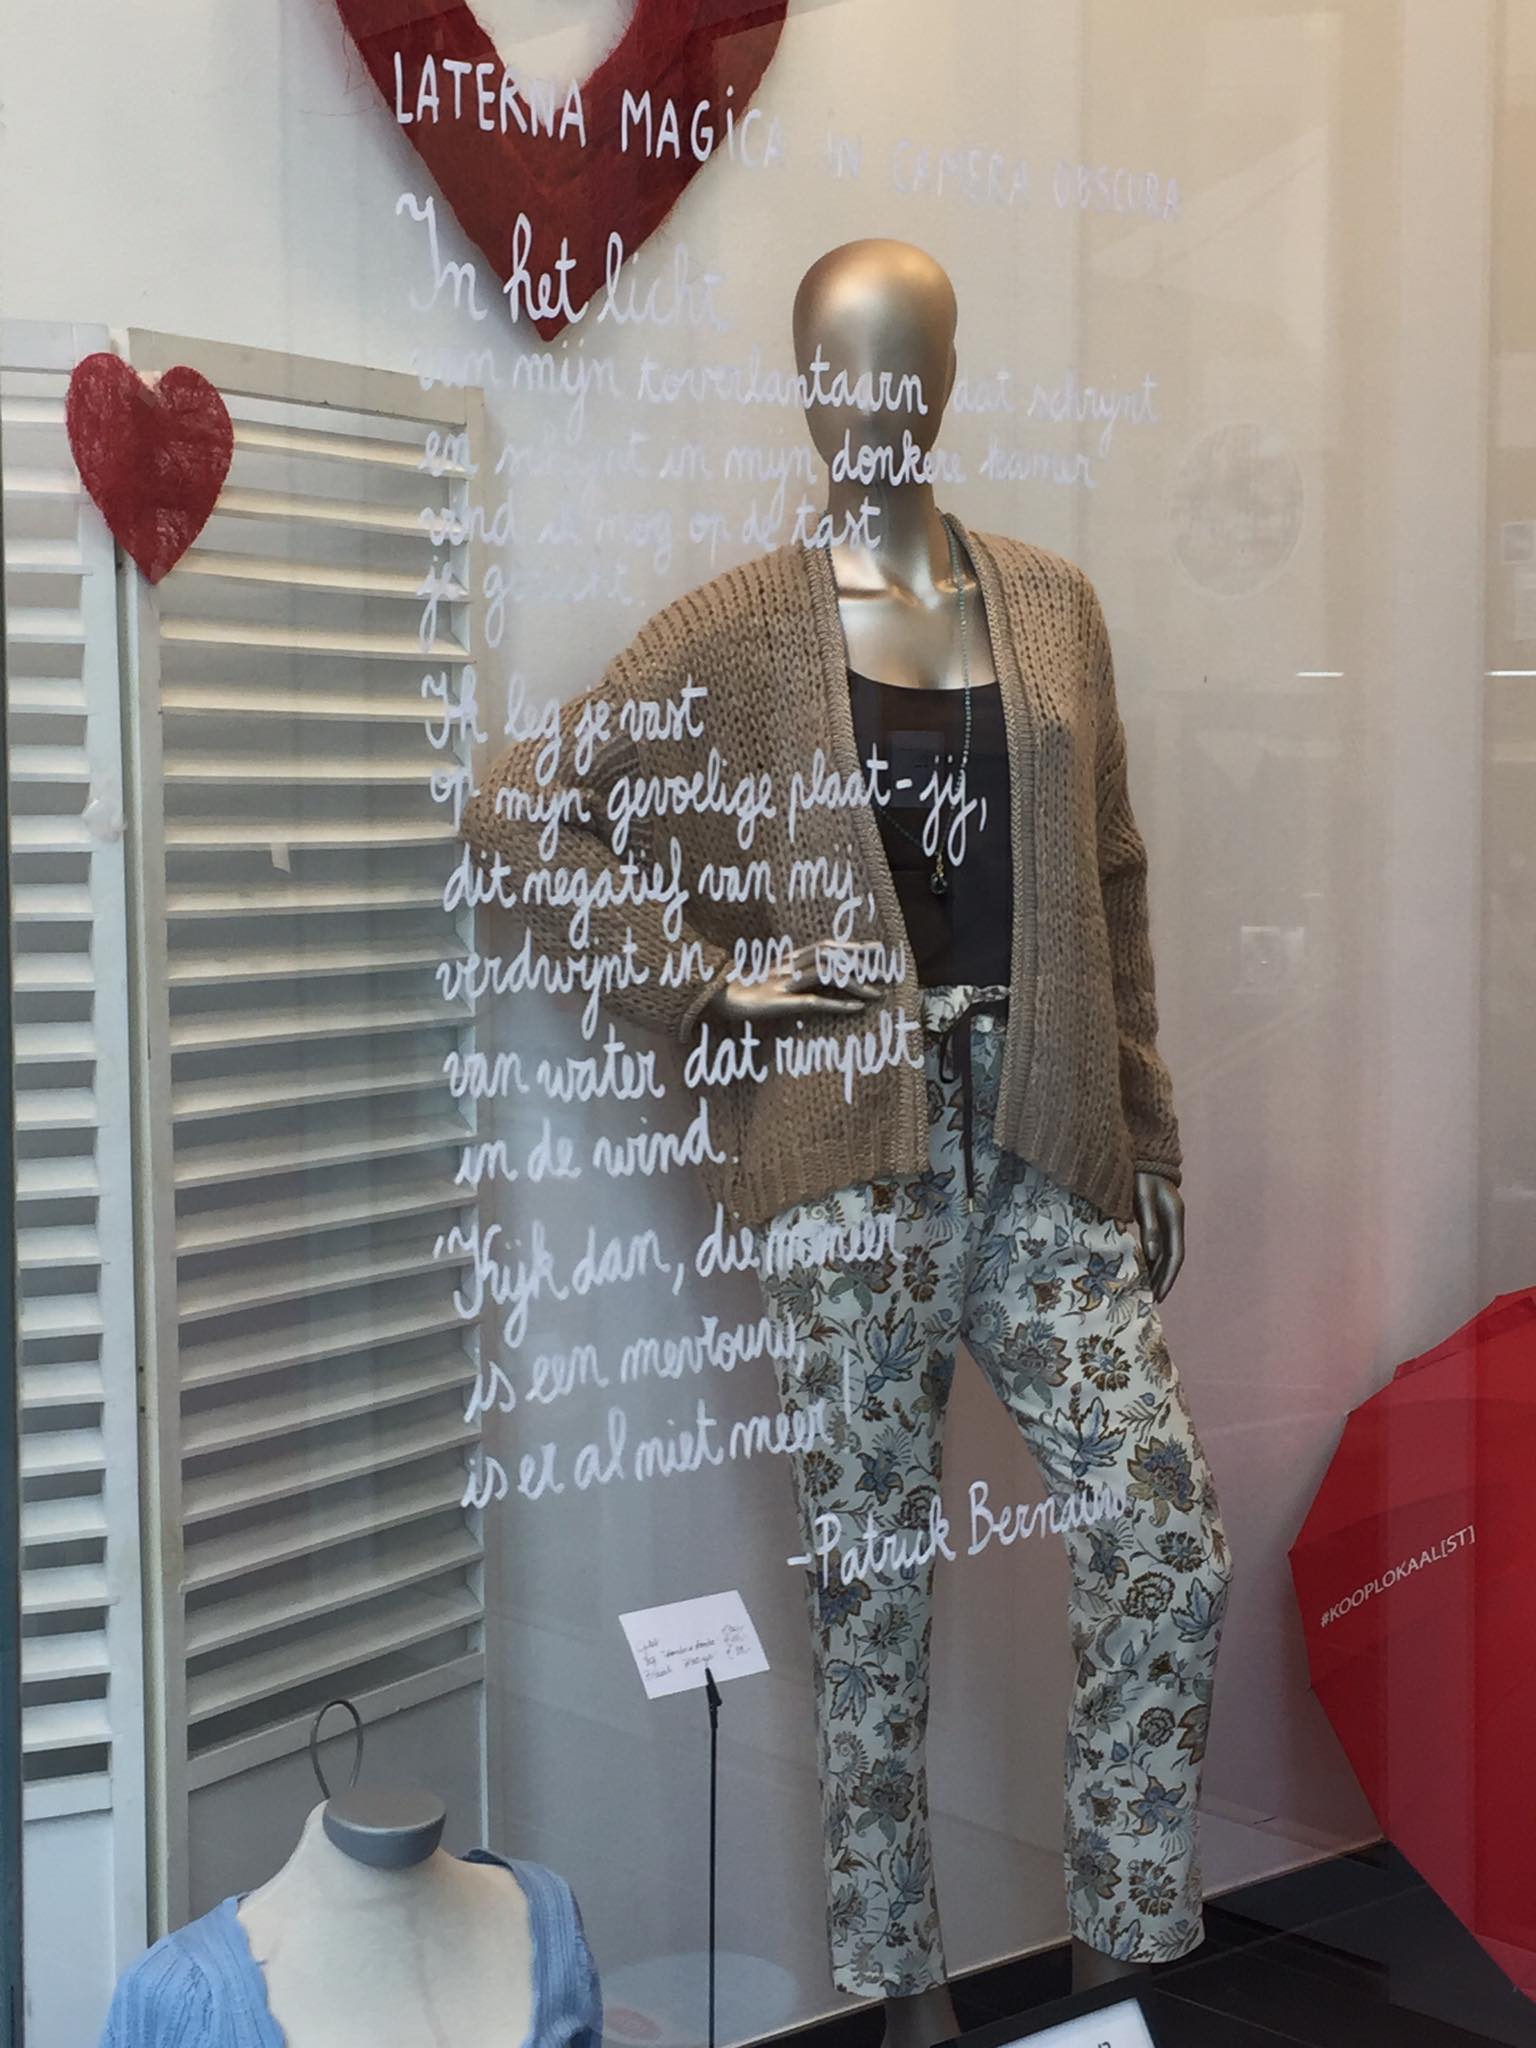 LATERNA MAGICA IN CAMERA OBSCURA
In het licht
van mijn toverlantaarn dat schrijnt
en schijnt in mijn donkere kamer
vind ik nog op de tast
je gezicht.
Ik leg je vast
op mijn gevoelige plaat - jij,
dit negatief van mij,
verdwijnt in een vouw
van water dat rimpelt
in de wind.
'Kijk dan, die meneer
is een mevrouw,
is er al niet meer!
- Patrick Bernauw
#KOOPLOKAAL[ST]